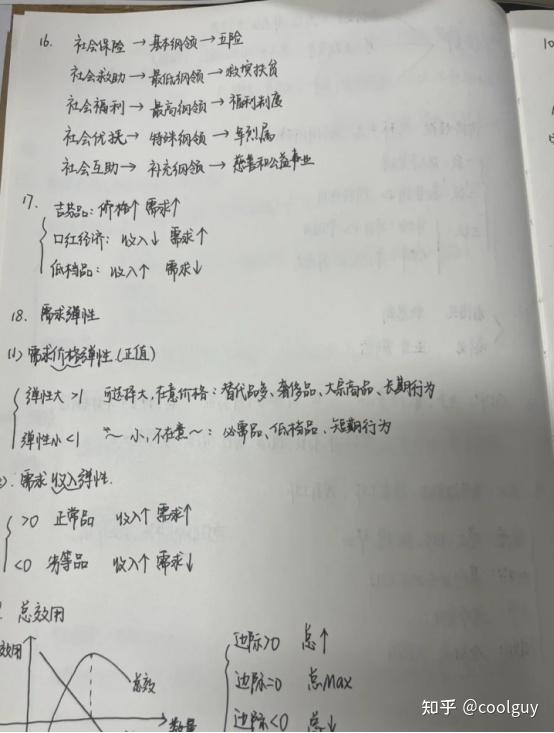 16. 社会保险 → 基本纲领 → 五险
社会救助 → 最低纲领 → 救灾扶贫
社会福利 → 最高纲领 → 福利制度
社会优抚 → 特殊纲领 → 军烈属
社会互助 → 补充纲领 → 慈善和公益事业
17. 吉芬品: 价格↑ 需求↑
口红经济: 收入↓ 需求↑
低档品: 收入↑ 需求↓
18. 需求弹性
(1) 需求价格弹性(正值)
弹性大 >1 可选择大,在意价格: 替代品多、奢侈品、大宗商品、长期行为
弹性小 <1 ~ 小,不在意~: 必需品、低档品、短期行为
). 需求收入弹性.
>0 正常品 收入↑ 需求↑
<0 劣等品 收入↑ 需求↓
总效用
效用
总效
数量
边际>0 总↑
边际=0 总Max
边际<0 总↓
知乎 @coolguy